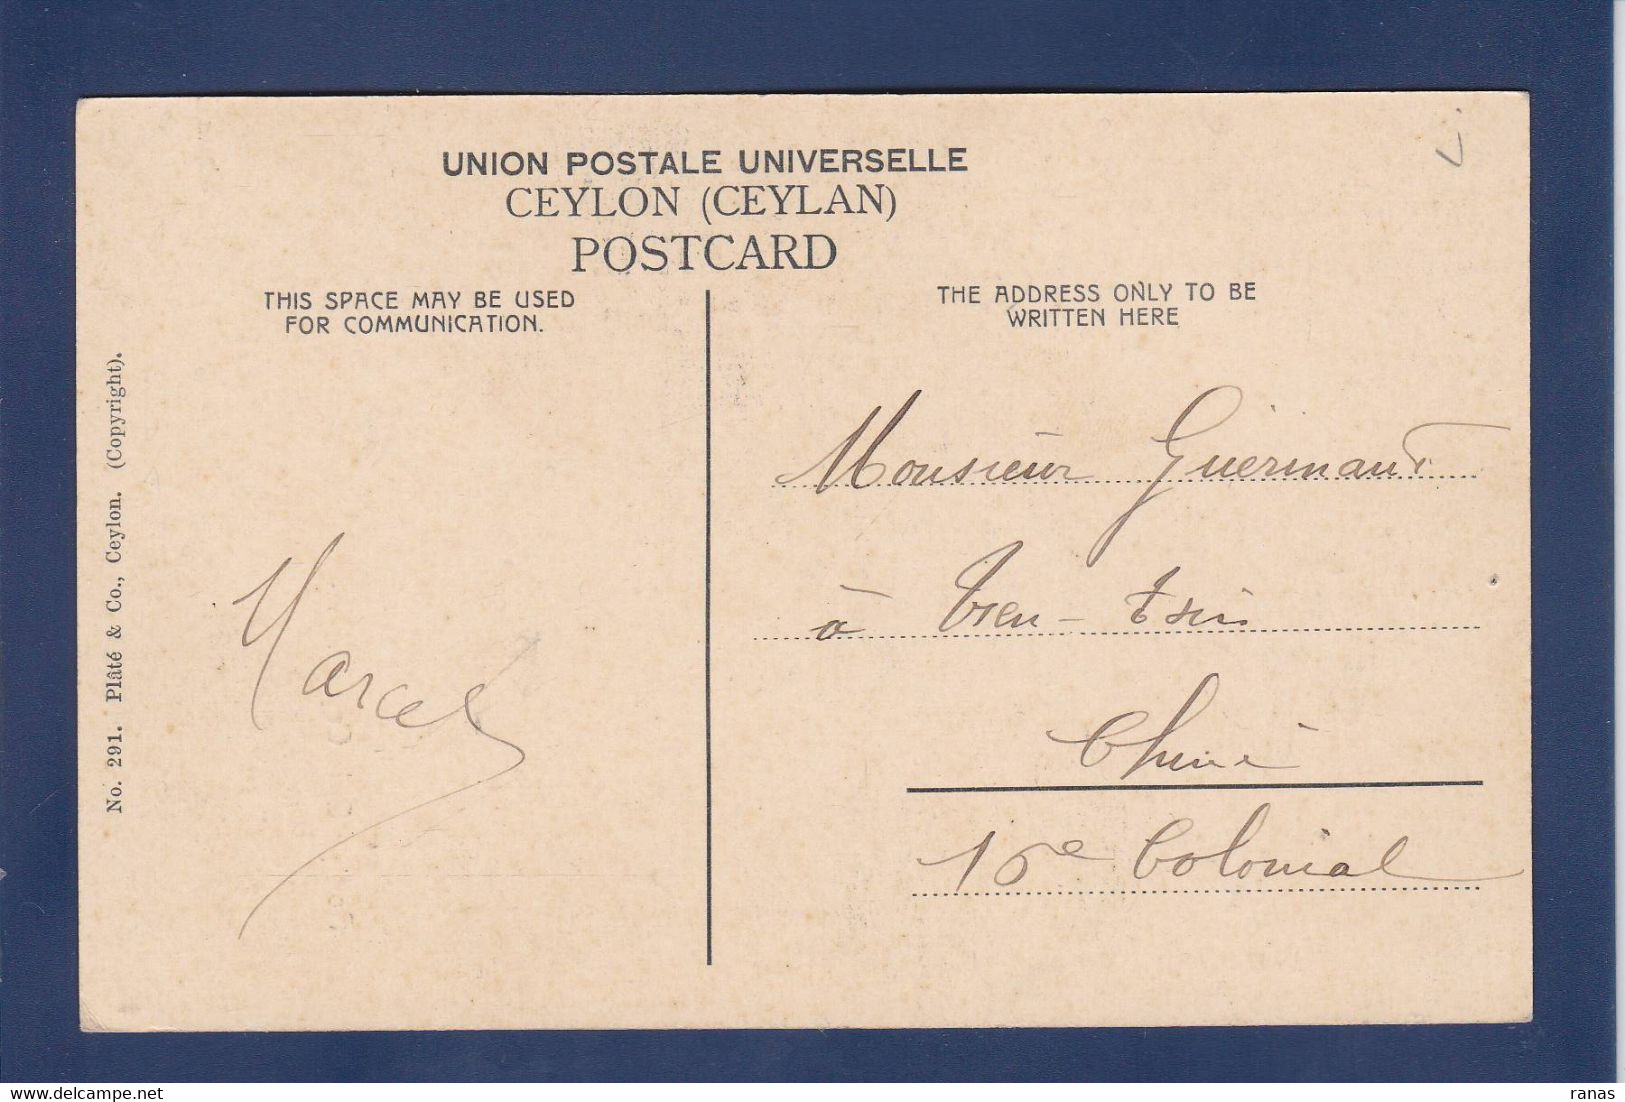 UNION POSTALE UNIVERSELLE
CEYLON (CEYLAN)
POSTCARD
THIS SPACE MAY BE USED
FOR COMMUNICATION.
THE ADDRESS ONLY TO BE
WRITTEN HERE
No. 291. Plâté & Co., Ceylon. (Copyright).
Marcel
Monsieur Guermant
à Tien-Tsin
Chine
16e Colonial
ranas